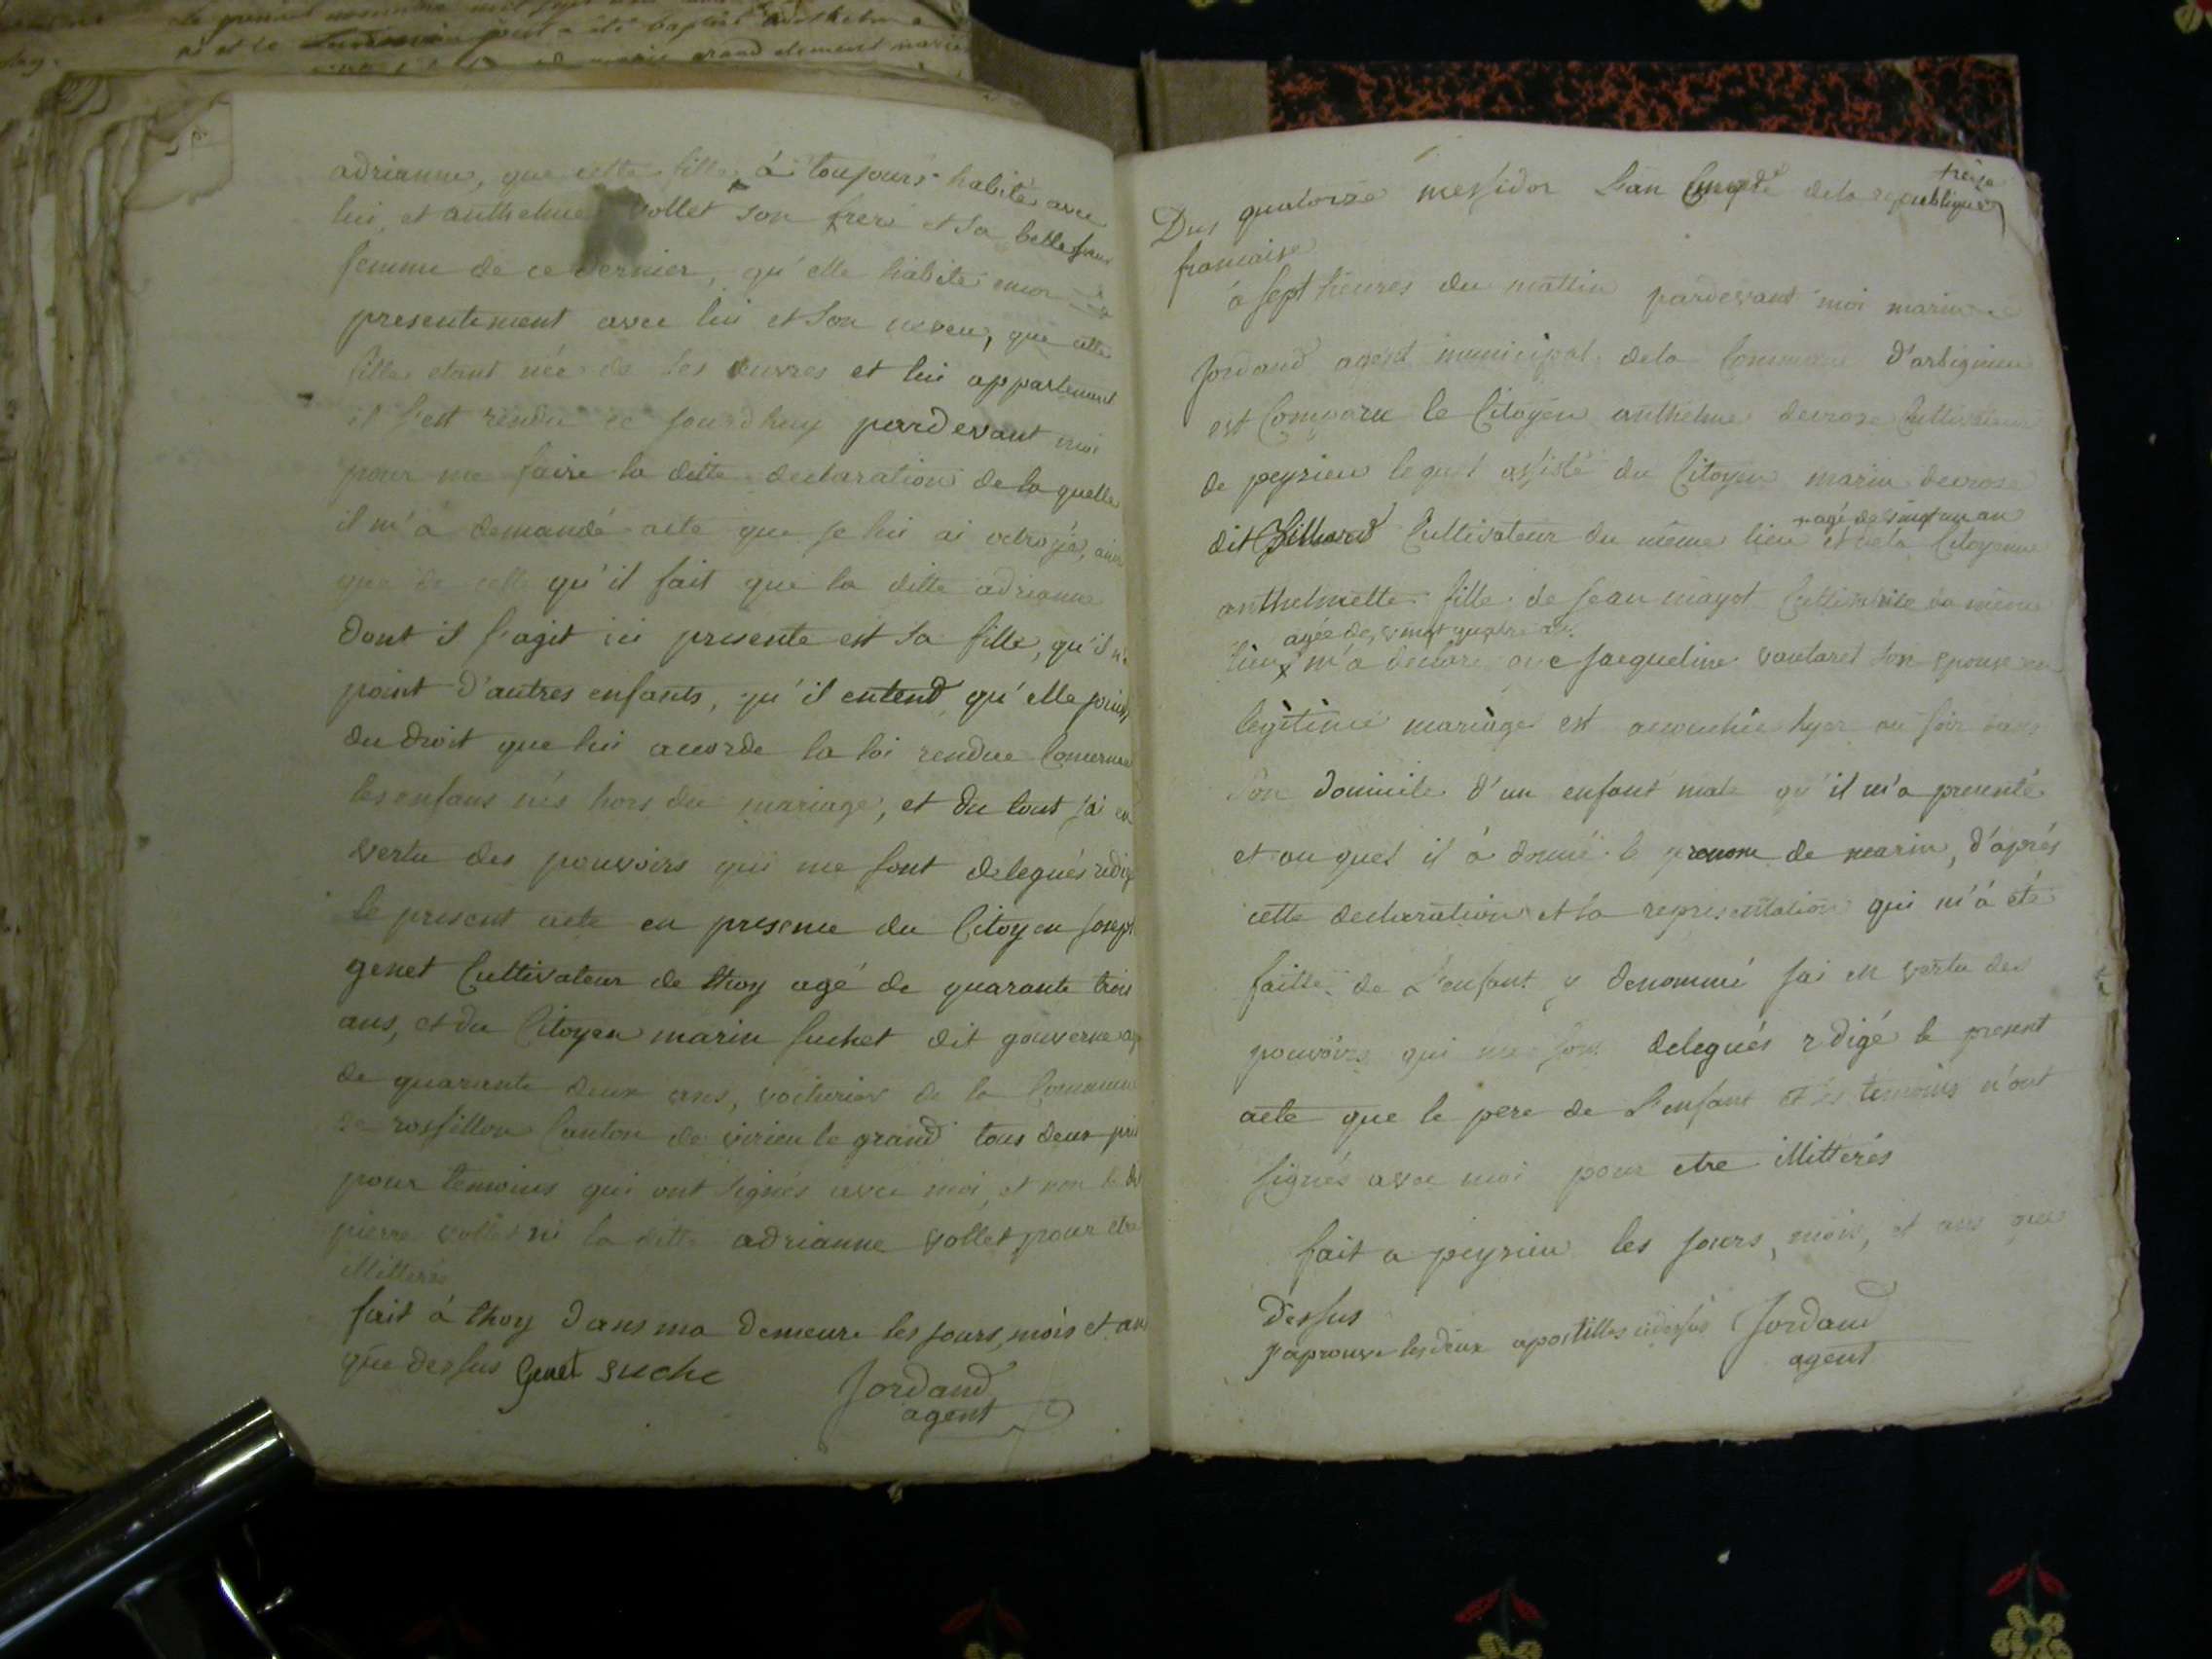 adrianne, que cette fille à toujours habité avec
lui, et anthelme vollet son frere et sa belle soeur
femme de ce dernier, qu'elle habite encor
presentement avec lui et son neveu, que cette
fille etant née de ses œuvres et lui appartenant
il s'est rendu ce jourdhuy pardevant moi
pour me faire la ditte declaration de la quelle
il m'a demandé acte que je lui ai octroyé, ainsi
que de celle qu'il fait que la ditte adrianne
dont il s'agit ici presente est sa fille, qu'il n'a
point d'autres enfants, qu'il entend qu'elle jouisse
du droit que lui accorde la loi rendue concernan
les enfans nés hors du mariage, et du tout j'ai en
vertu des pouvoirs qui me sont delegués redigé
le present acte en presence du Citoyen Joseph
genet Cultivateur de thoy agé de quarante trois
ans, et du Citoyen marin suchet dit gouverne agé
de quarante deux ans, voiturier de la Commune
de rossillon Canton de virieu le grand tous deux pris
pour temoins qui ont signés avec moi, et non le dt
pierre vollet ni la ditte adrianne vollet pour etre
illitterés
fait à thoy dans ma demeure les jours, mois et an
que dessus Genet suche
Jordand
agent
treize
Du quatorze messidor L'an de la republique
francaise
à sept heures du mattin pardevant moi marin
Jordand agent municipal de la Commune d'arbignieu
est Comparu le Citoyen anthelme devroze Cultivateur
de peyrieu lequel assisté du Citoyen marin devroze
agé de vingt un an
dit Cultivateur du même lieu et de la Citoyenne
anthelmette fille de jean mayot Cultivatrice du même
agée de vingt quatre ans
lieu m'a declaré que jacqueline vautaret son epouse en
legitime mariage est accouchée hyer au soir dans
son domicile d'un enfant male qu'il m'a presenté
et au quel il à donné le prenom de marin, d'aprés
cette declaration et la representation qui m'a été
faitte de L'enfant y denommé j'ai en vertu des
pouvoirs qui me sont delegués rdigé le present
acte que le pere de L'enfant et les temoins n'ont
signés avec moi pour etre illitterés
fait a peyrieu les jours, mois, et ans que
dessus
J'aprouve les deux apostilles cidessus Jordand
agent